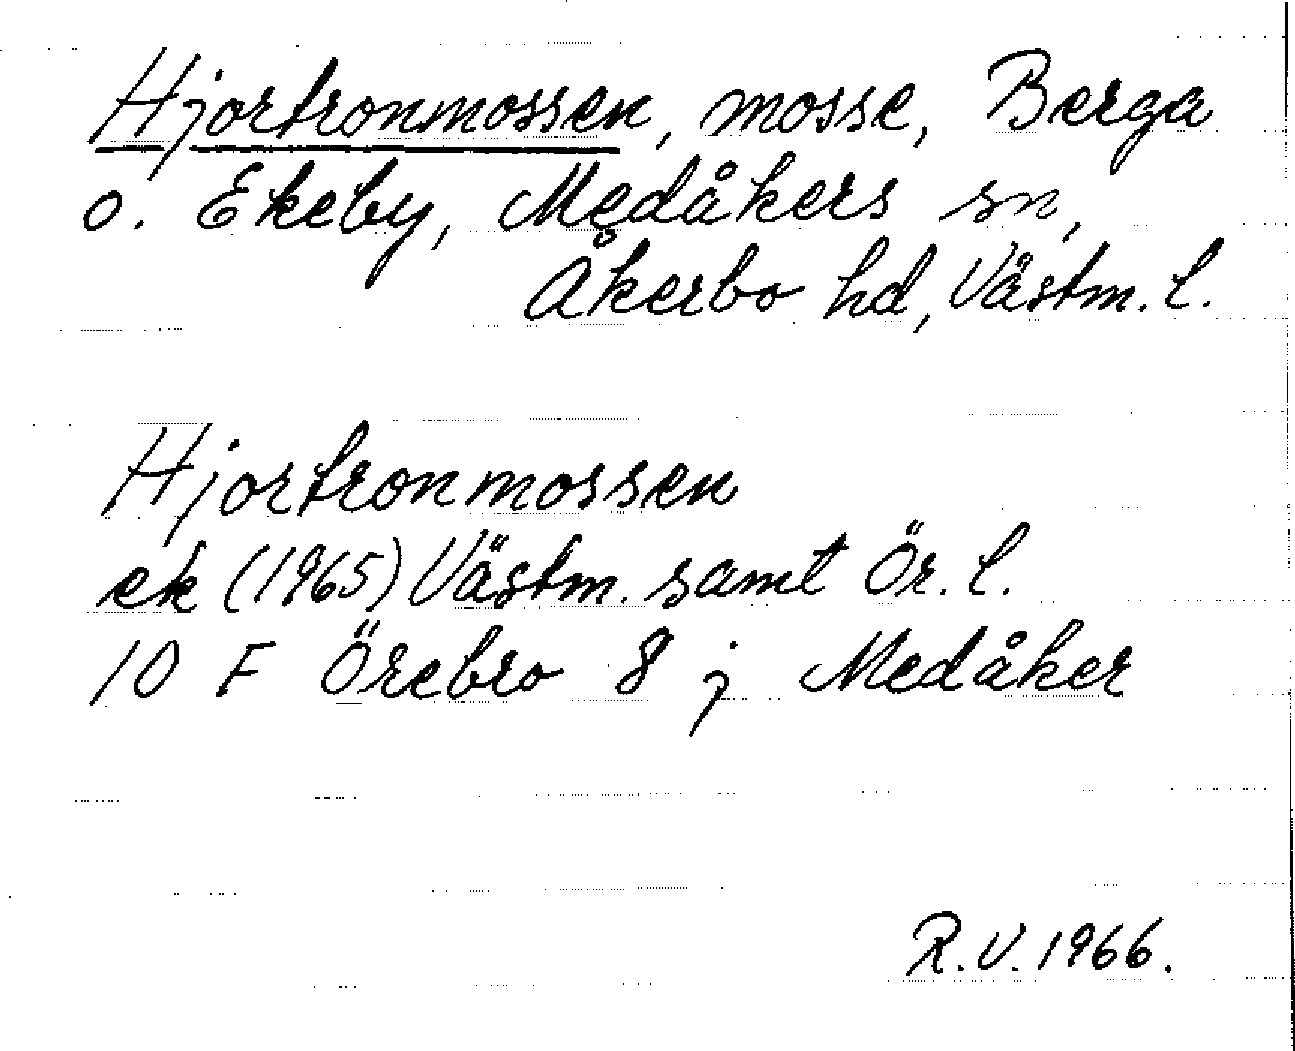 Hjortronmossen, mosse, Berga
o. Ekeby, Medåkers sn,
Åkerbo hd, Västm. l.
Hjortronmossen
ek (1965) Västm. samt Ör. l.
10 F Örebro 8 j Medåker
R.V. 1966.